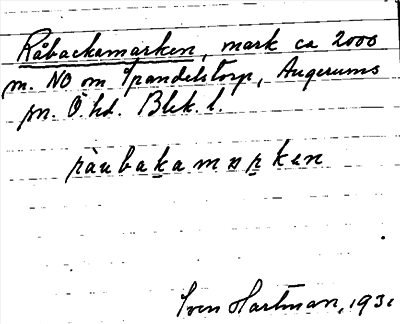 Råbackamarken, mark ca 2000
m. NO om Spandelstorp, Augerums
sn. Ö. hd. Blek. l.
ràubakamarken
Sven Hartman, 1931